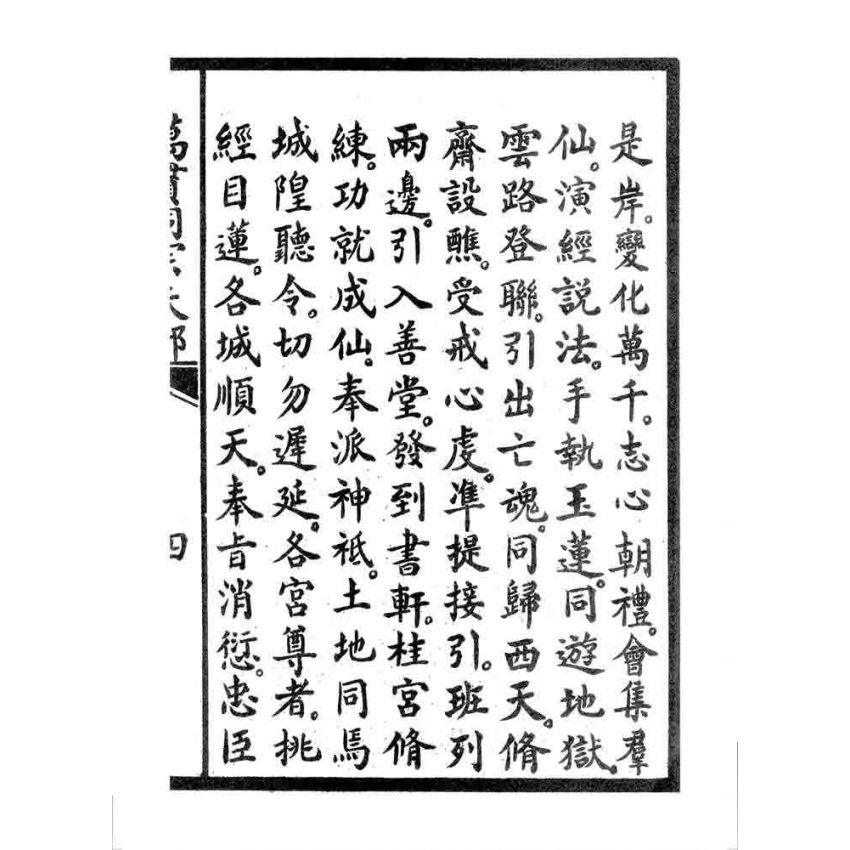 是岸。變化萬千。志心朝禮。會集羣
仙。演經說法。手執玉蓮。同遊地獄。
雲路登聯。引出亡魂。同歸西天。脩
齋設醮。受戒心虔。準提接引。班列
兩邊。引入善堂。發到書軒。桂宮脩
練。功就成仙。奉派神祇。土地同焉
城隍聽令。切勿遲延。各宮尊者。挑
經目蓮。各城順天。奉旨消愆。忠臣
四